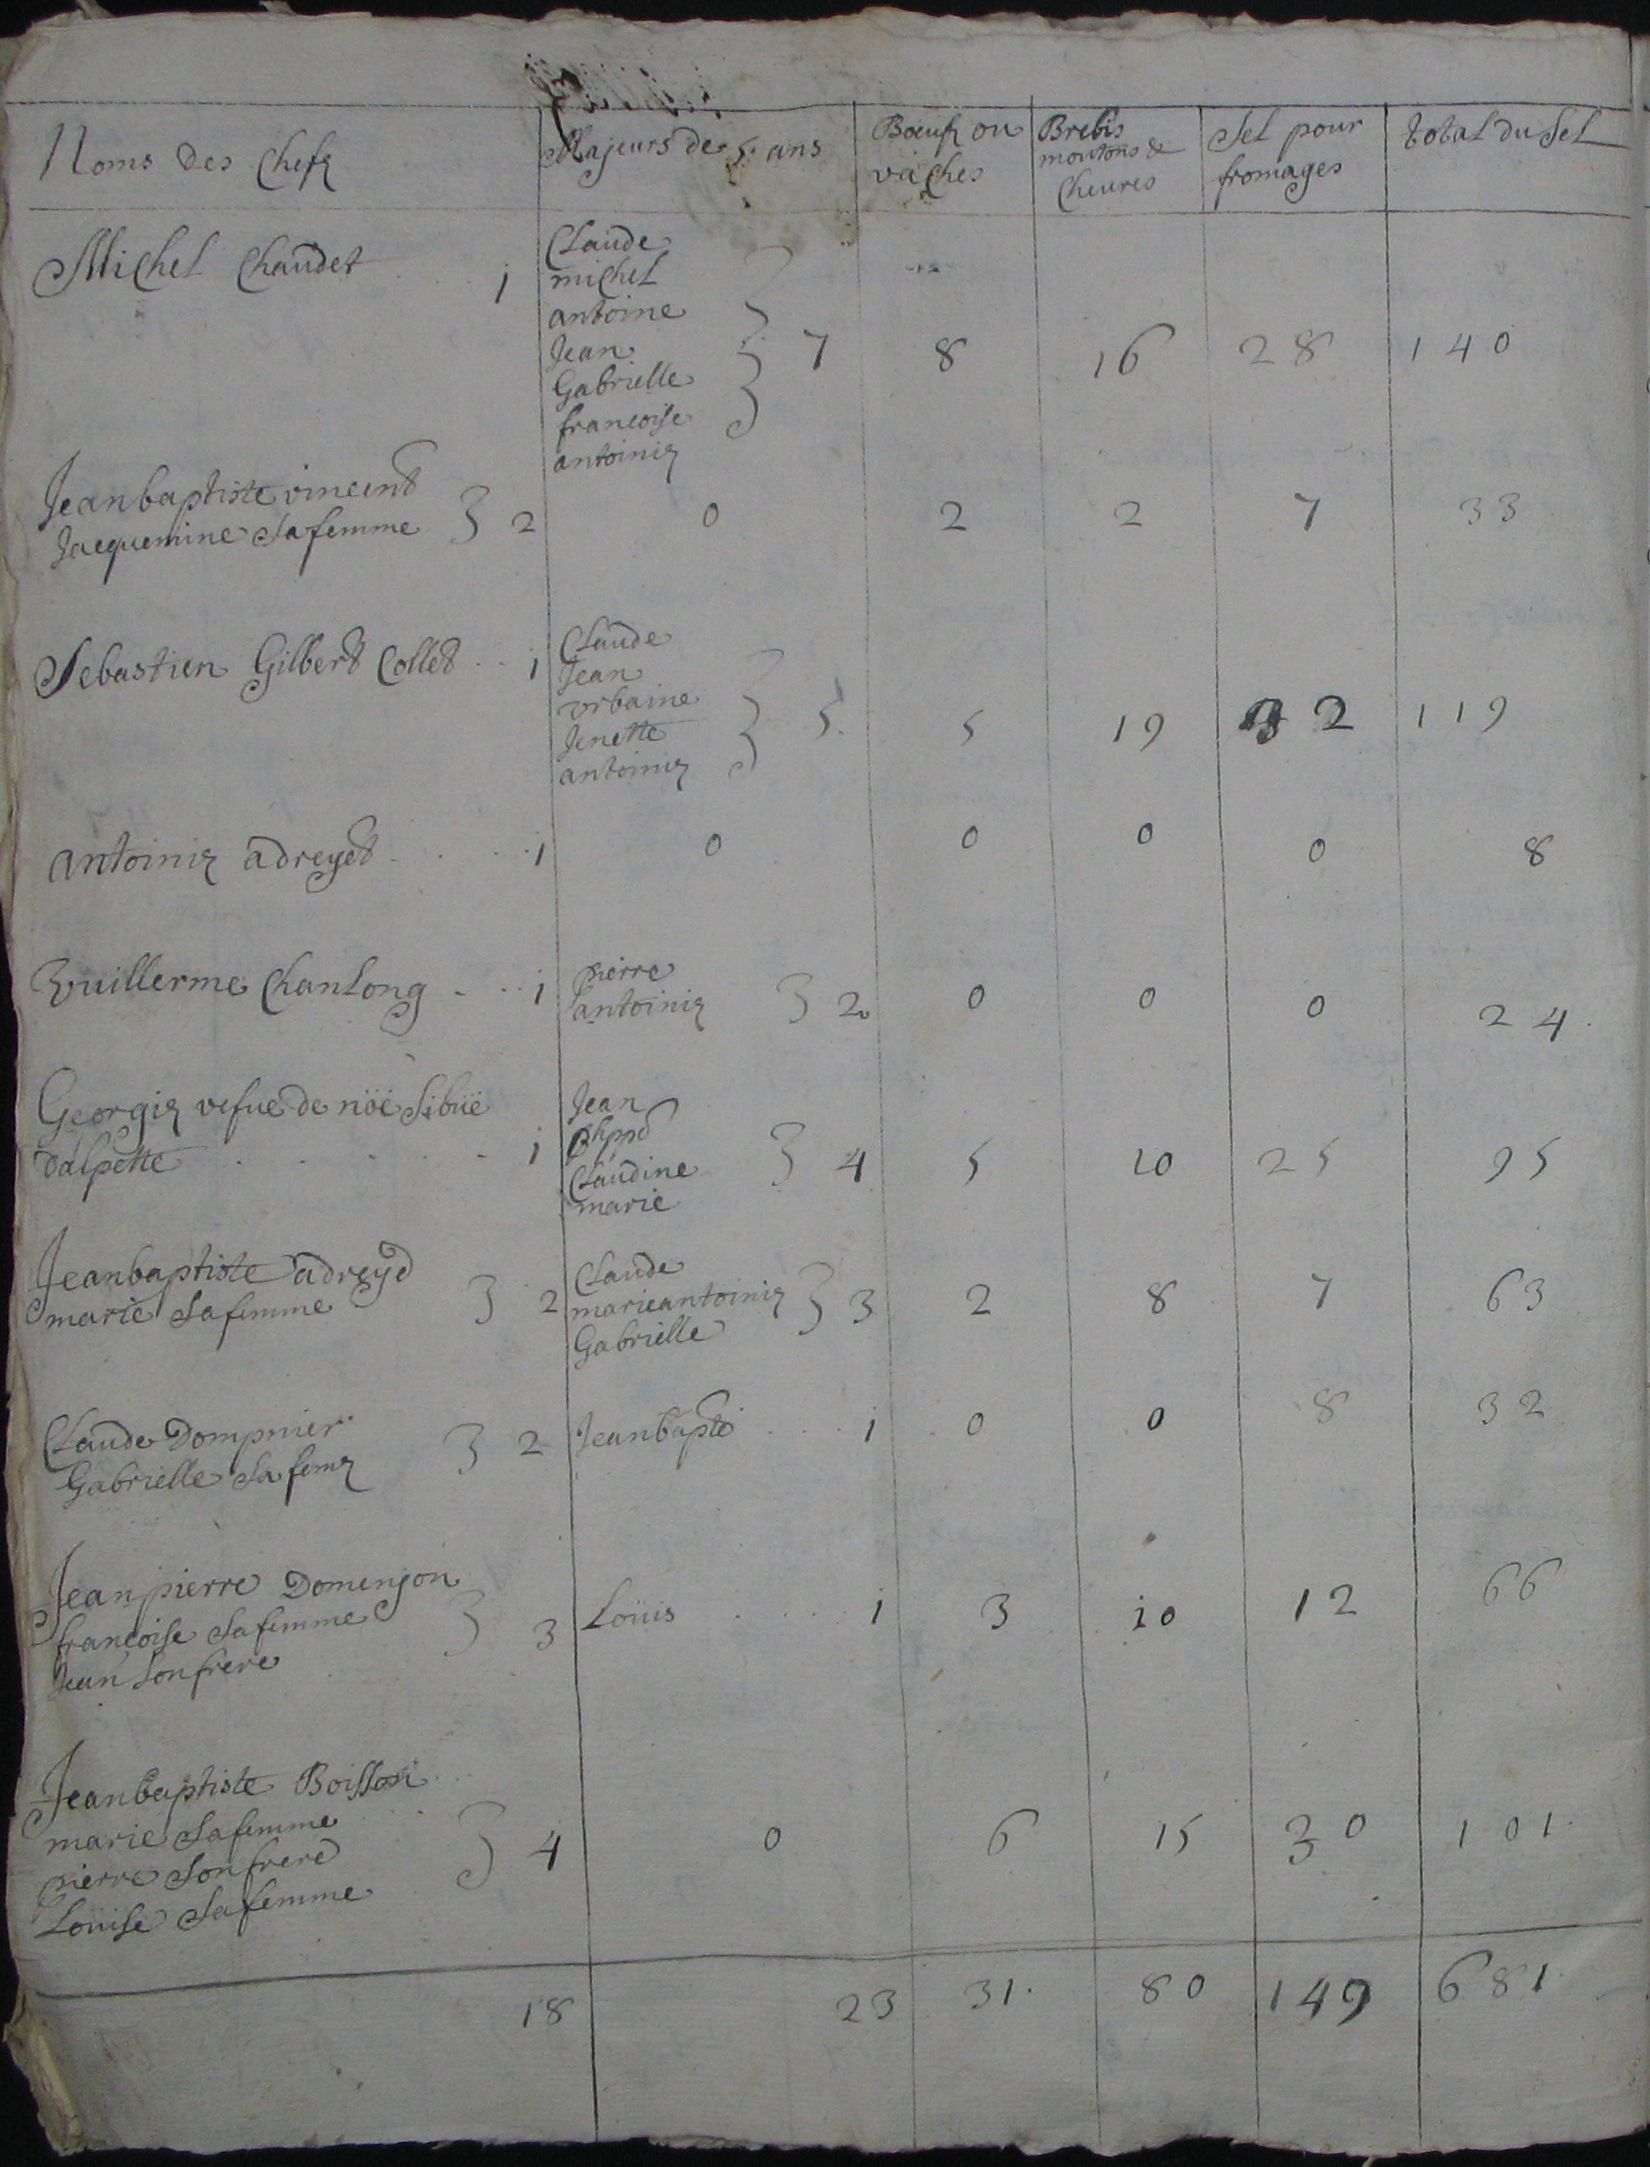 Noms des Chefz
Majeurs de 5 ans
Bœufz ou
vaches
Brebis
moutons &
Cheures
Sel pour
fromages
total du Sel
Michel Chaudet 1
Claude
michel
antoine
Jean
Gabrielle
francoise
antoinie
7 8 16 28 140
Jeanbaptiste vincent
Jacquemine sa femme 2 0 2 2 7 33
Sebastien Gilbert Collet 1
Claude
Jean
vrbaine
Jenette
antoinie
5 5 19 32 119
antoinie adreyet 1 0 0 0 0 8
Vuillerme Chanlong 1
pierre
antoinie
2 0 0 0 24
Georgie vefue de nöe Sibüe
dalpette 1
Jean
phppe
Claudine
marie
4 5 10 25 95
Jeanbaptiste adreyd
marie sa femme 2
Claude
marieantoinie
Gabrielle
3 2 8 7 63
Claude Dompnier
Gabrielle sa feme 2 Jeanbapte 1 0 0 8 32
Jeanpierre Domenjon
françoise sa femme
Jean son frere
3 Loüis 1 3 10 12 66
Jeanbaptiste Boisson
marie sa femme
pierre son frere
Loüise sa femme
4 0 6 15 30 101
18 23 31 80 149 681